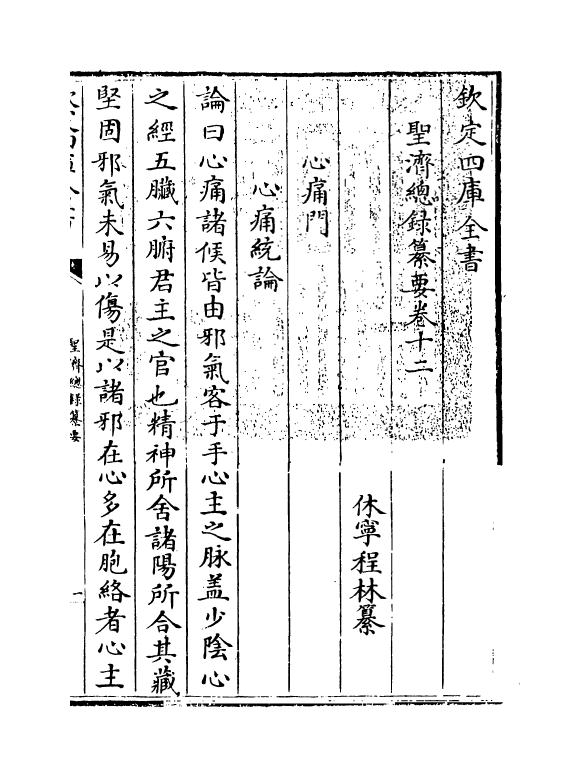 欽定四庫全書
聖濟總録纂要卷十二
休寧程林纂
心痛門
心痛統論
論曰心痛諸候皆由邪氣客于手心主之脉盖少陰心
之經五臟六腑君主之官也精神所舍諸陽所合其藏
堅固邪氣未易以傷是以諸邪在心多在胞絡者心主
聖濟總録纂要
一